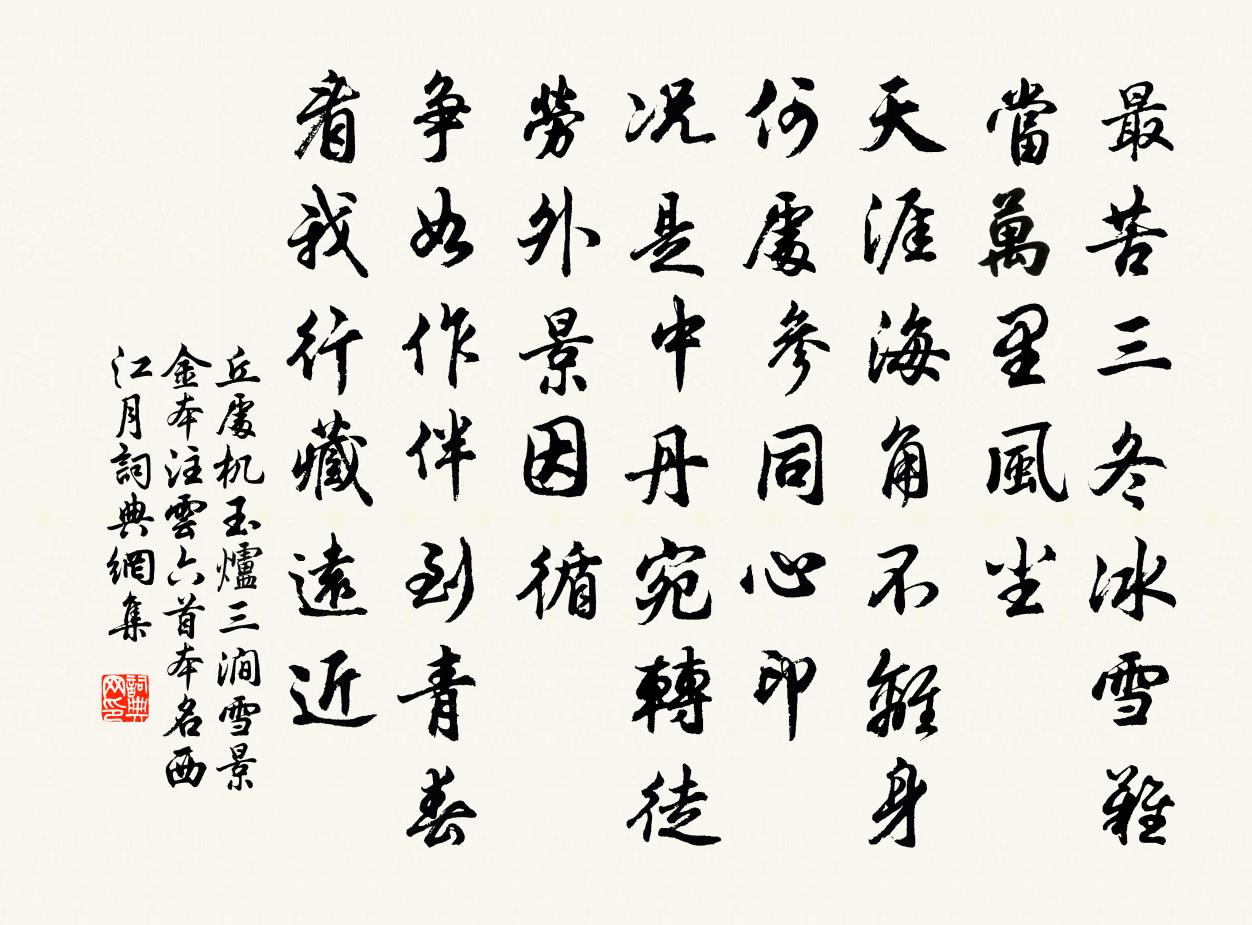 最苦三冬冰雪難
當萬里風尘
天涯海角不離身
何處參同心印
况是中丹宛轉徒
勞外景因循
争如作伴到青春
看我行藏遠近
丘處机玉爐三澗雪景
金本注雲六首本名西
江月詞典網集
詞典網印